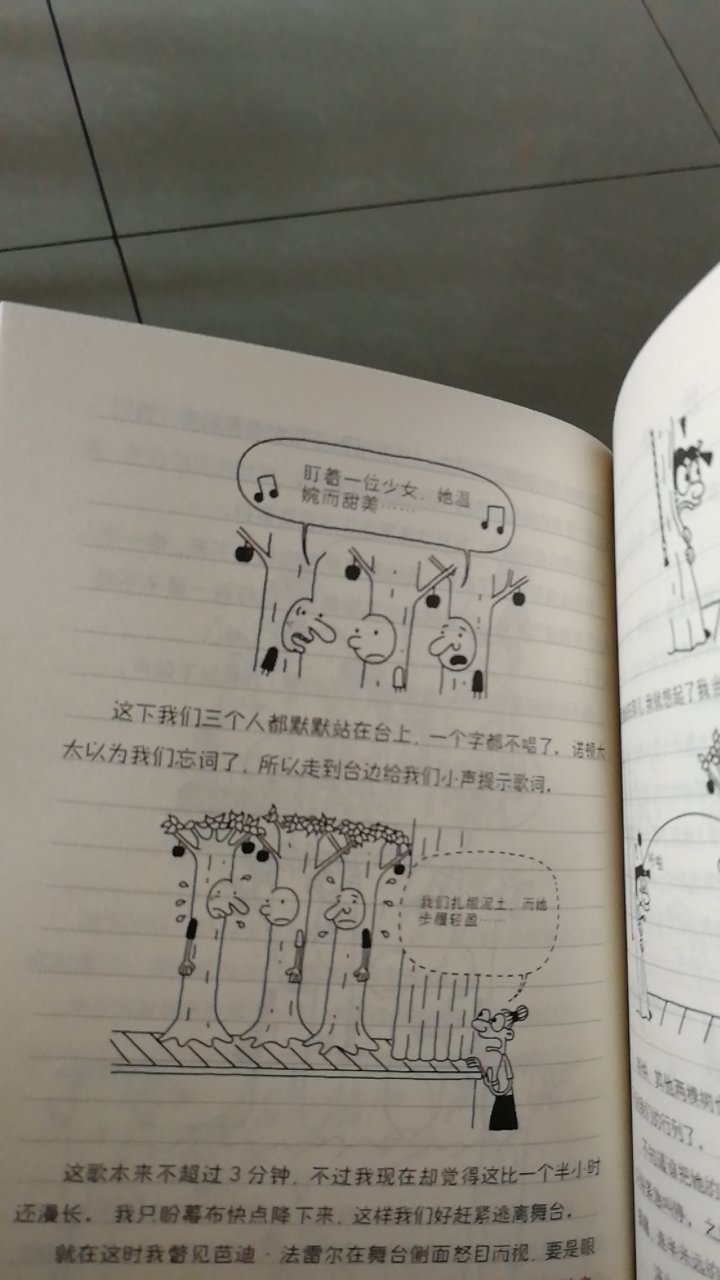 盯着一位少女，她温
婉而甜美……
这下我们三个人都默默站在台上，一个字都不唱了。诺顿太
太以为我们忘词了，所以走到台边给我们小声提示歌词。
我们扎根泥土，而她
步履轻盈……
这歌本来不超过3分钟，不过我现在却觉得这比一个半小时
还漫长。我只盼幕布快点降下来，这样我们好赶紧逃离舞台。
就在这时我瞥见芭迪·法雷尔在舞台侧面怒目而视，要是眼
我就想起了我当
其他两棵树也
们的行列了。
不知道谁把她的